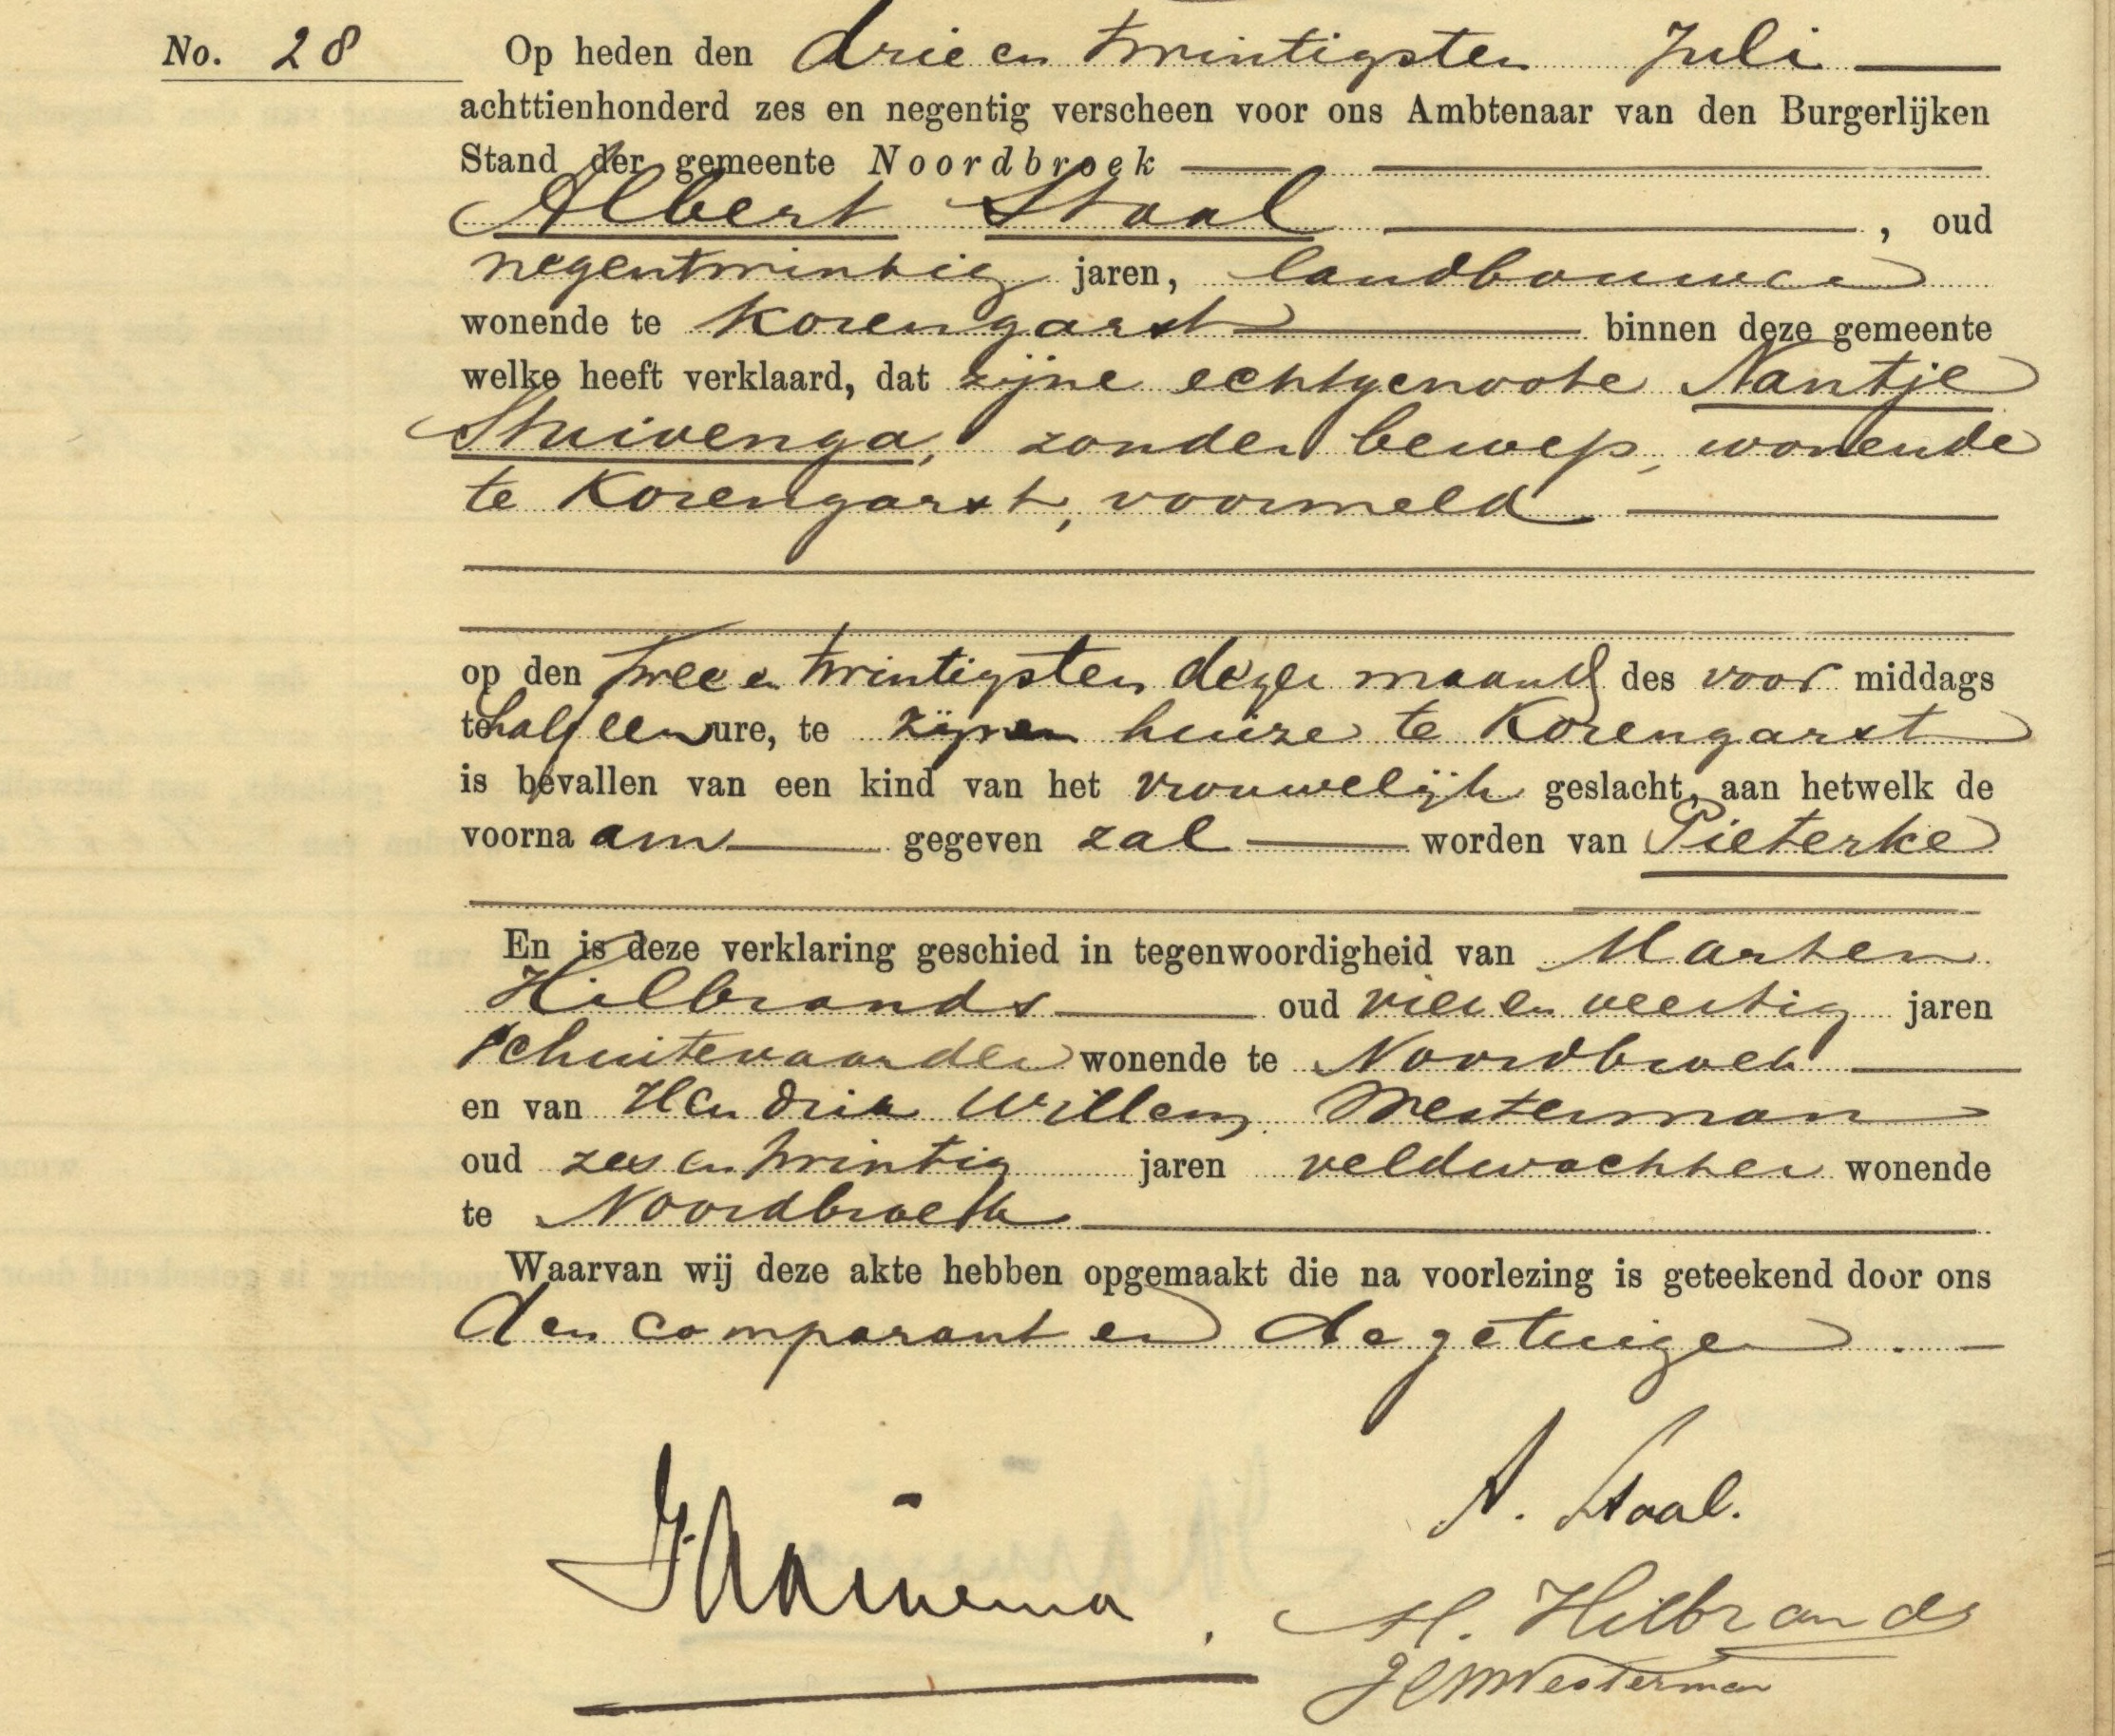 No. 28 Op heden den drie en twintigsten Juli
achttienhonderd zes en negentig verscheen voor ons Ambtenaar van den Burgerlijken
Stand der gemeente Noordbroek
Albert Staal, oud
negentwintig jaren, landbouwer
wonende te Korengarst binnen deze gemeente
welke heeft verklaard, dat zijne echtgenoote Nantje
Stuivenga, zonder beroep, wonende
te Korengarst, voormeld
op den twee en twintigsten dezer maand des voor middags
te half een ure, te zijnen huize te Korengarst
is bevallen van een kind van het vrouwelijk geslacht, aan hetwelk de
voorna am gegeven zal worden van Pieterke
En is deze verklaring geschied in tegenwoordigheid van Marten
Hilbrands oud vier en veertig jaren
schuitevaarder wonende te Noordbroek
en van Hendrik Willem Westerman
oud zes en twintig jaren veldwachter wonende
te Noordbroek
Waarvan wij deze akte hebben opgemaakt die na voorlezing is geteekend door ons
den comparant en de getuigen.
A. Staal.
M. Hilbrands
Westerman